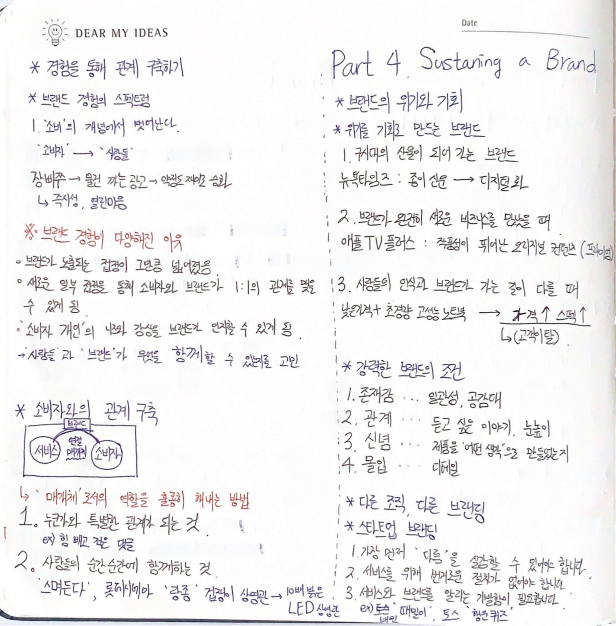 DEAR MY IDEAS
* 경험을 통해 관계 구축하기
* 브랜드 경험의 스펙트럼
1. '소비'의 개념에서 벗어난다.
'소비자' → '사람들'
장비쭈 → 몰컨 까는 광고 →
↳ 즉시성, 열린마음
※ 브랜드 경험이 다양해진 이유
• 브랜드가 노출되는 접점이 그만큼 넓어졌음
• 새로운 일부 접점을 통해 소비자와 브랜드가 1:1의 관계를 맺을
수 있게 됨
• '소비자 개인'의 니즈와 감성을 브랜드가 인지할 수 있게 됨
→ '사람들'과 '브랜드'가 무엇을 함께할 수 있는지를 고민
* 소비자와의 관계 구축
브랜드
서비스 연결 매개체 소비자
↳ '매개체'로서의 역할을 훌륭히 해내는 방법
1. 누군가와 특별한 관계가 되는 것
ex) 힘 빼고 적은 댓글
2. 사람들의 순간순간에 함께하는 것.
'스며든다', 롯데시네마 '광음' 겁장이 상영관 → 10배 밝은
LED 상영관
Date
Part 4. Sustaning a Brand
* 브랜드의 위기와 기회
* 위기를 기회로 만드는 브랜드
1. 구시대의 산물이 되어 가는 브랜드
뉴욕타임즈 : 종이 신문 → 디지털화
2. 브랜드가 완전히 새로운 비즈니스를 만났을 때
애플TV플러스 : 작품성이 뛰어난 오리지널 컨텐츠 (프리미엄)
3. 사람들의 인식과 브랜드가 가는 길이 다를 때
낮은가격 + 초경량 고성능 노트북 → 가격↑ 스펙↑
↳ (고객이탈)
* 강력한 브랜드의 조건
1. 존재감 … 일관성, 공감대
2. 관계 … 듣고 싶은 이야기, 눈높이
3. 신념 … 제품을 '어떤 생각'으로 만들었는지
4. 몰입 … 디테일
* 다른 조직, 다른 브랜딩
* 스타트업 브랜딩
1. 가장 먼저 '다름'을 실감할 수 있어야 합니다.
2. 서비스를 위해 번거로운 절차가 없어야 합니다.
3. 서비스와 브랜드를 알리는 기발함이 필요합니다.
ex) 배민 '때밀이', 토스 '행운퀴즈'